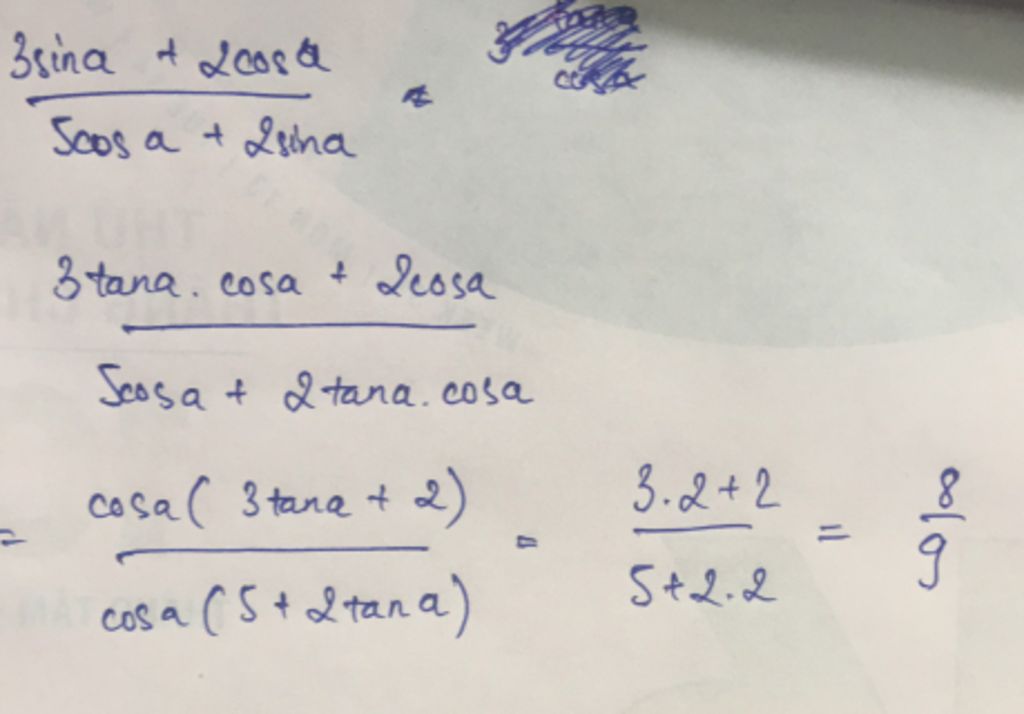 3sina + 2cosa
5cosa + 2sina
=
3tana. cosa + 2cosa
5cosa + 2tana. cosa
= cosa( 3tana + 2) = 3.2+2 = 8
cosa (5 + 2tana) 5+2.2 9